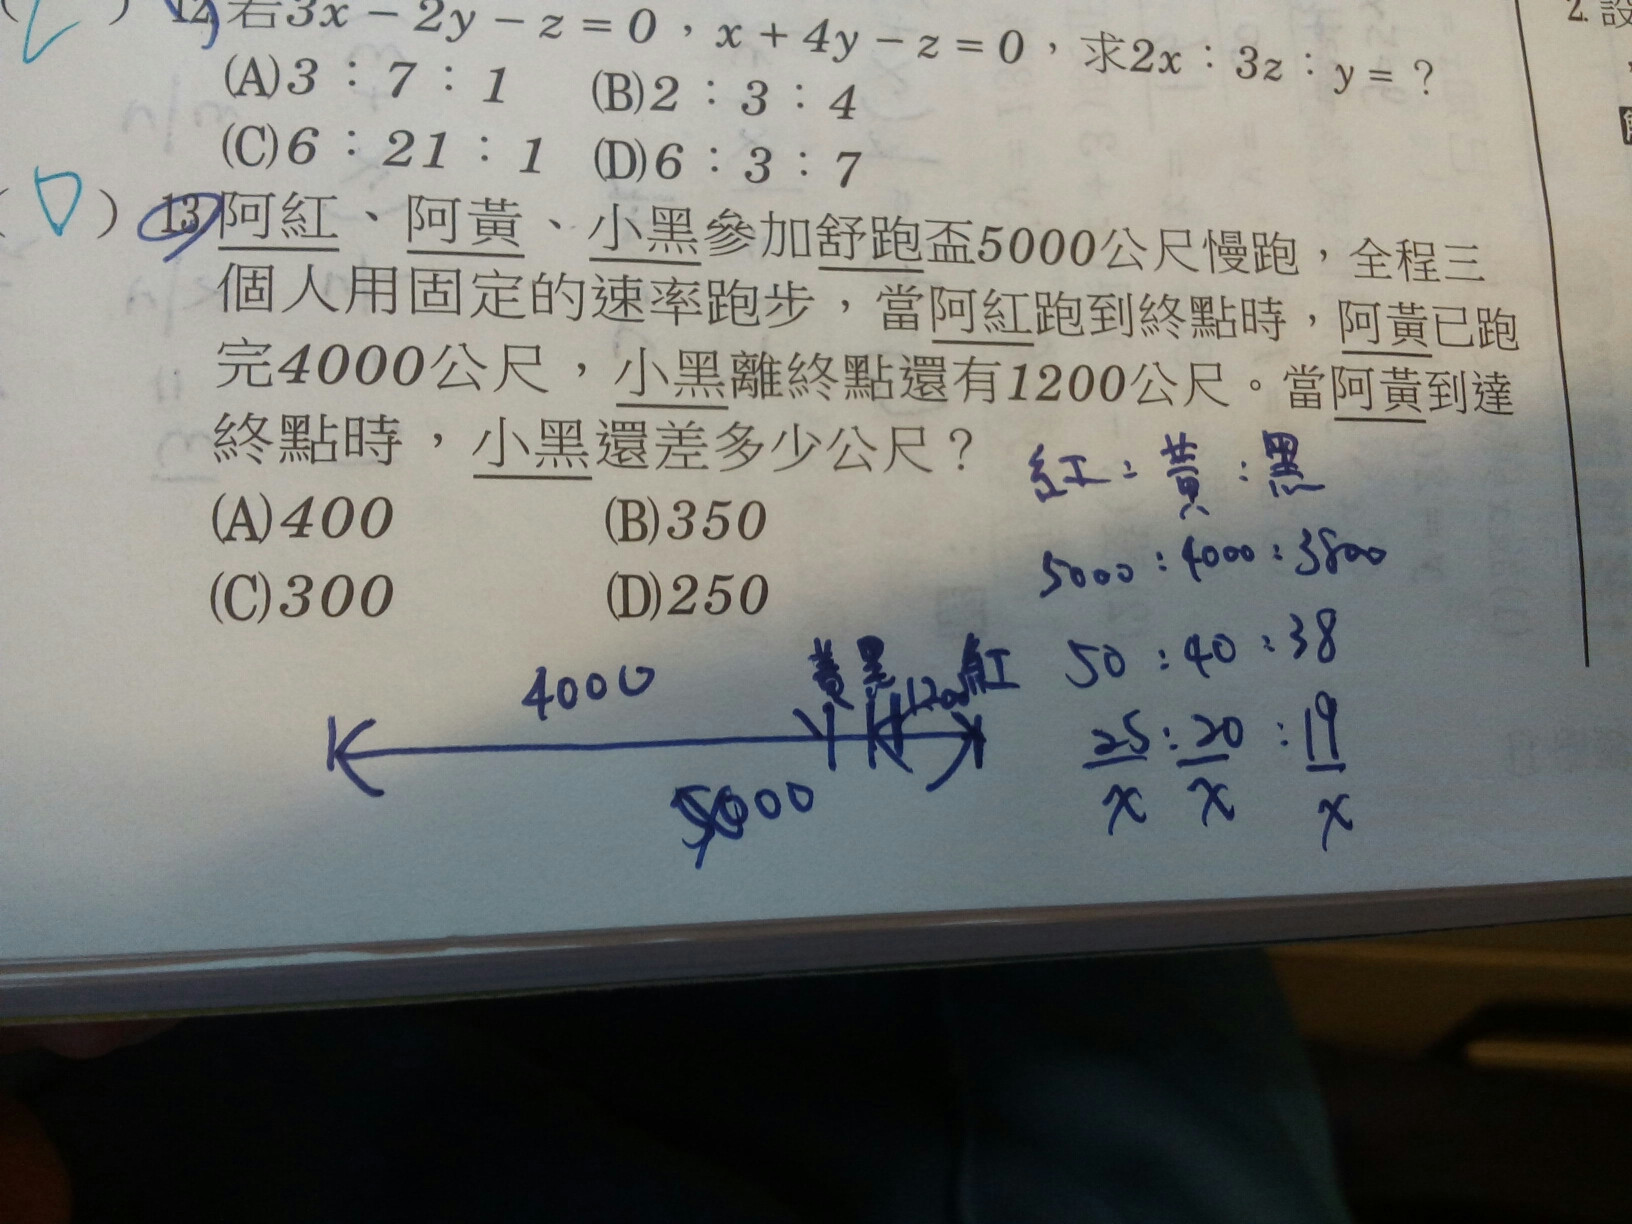 ( ) 12. 若3x − 2y − z = 0，x + 4y − z = 0，求2x：3z：y = ？
(A)3：7：1 (B)2：3：4
(C)6：21：1 (D)6：3：7
(D) 13. 阿紅、阿黃、小黑參加舒跑盃5000公尺慢跑，全程三
個人用固定的速率跑步，當阿紅跑到終點時，阿黃已跑
完4000公尺，小黑離終點還有1200公尺。當阿黃到達
終點時，小黑還差多少公尺？
(A)400 (B)350
(C)300 (D)250
紅：黃：黑
5000：4000：3800
50：40：38
25：20：19
x x x
4000 黃 黑 1200 紅
5000
2. 設